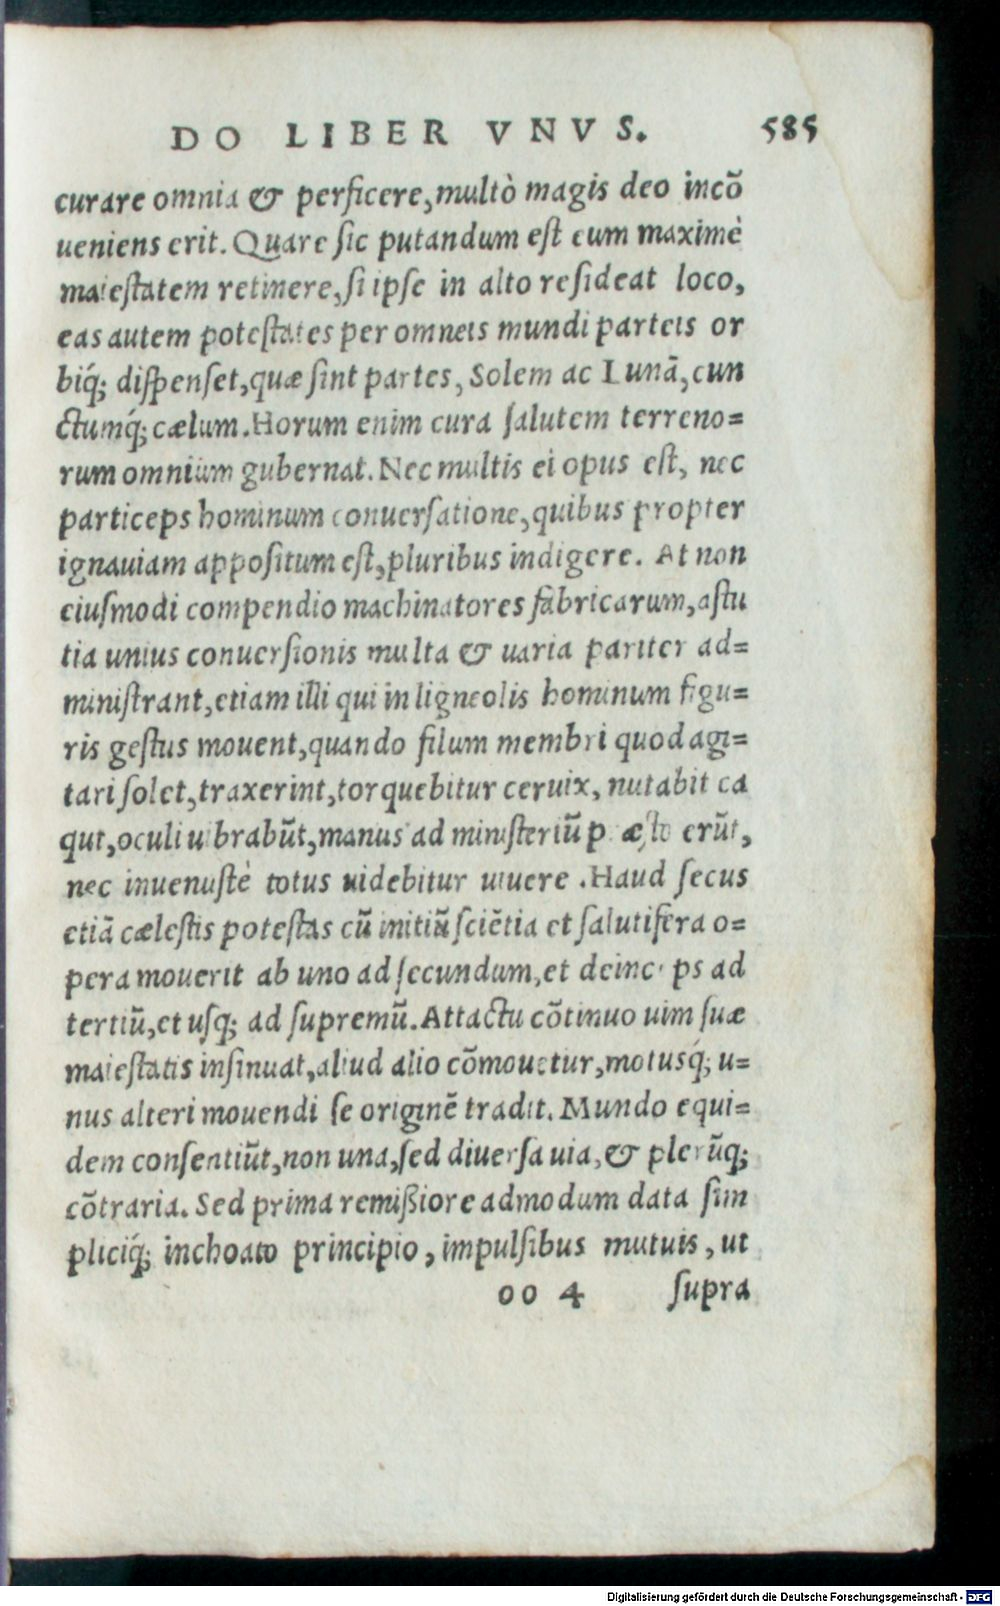 DO LIBER VNVS. 585
curare omnia & perficere, multò magis deo incõ
ueniens erit. Quare sic putandum est eum maximè
maiestatem retinere, si ipse in alto resideat loco,
eas autem potestates per omneis mundi parteis or
biq́; dispenset, quæ sint partes, Solem ac Lunã, cun
ctumq́; cælum. Horum enim cura salutem terreno=
rum omnium gubernat. Nec multis ei opus est, nec
particeps hominum conuersatione, quibus propter
ignauiam appositum est, pluribus indigere. At non
eiusmodi compendio machinatores fabricarum, astu
tia unius conuersionis multa & uaria pariter ad=
ministrant, etiam illi qui in ligneolis hominum figu=
ris gestus mouent, quando filum membri quod agi=
tari solet, traxerint, torquebitur ceruix, nutabit ca
qut, oculi uibrabũt, manus ad ministeriũ præsto erũt,
nec inuenustè totus uidebitur uiuere. Haud secus
etiã cælestis potestas cũ initiũ sciẽtia et salutifera o=
pera mouerit ab uno ad secundum, et deinceps ad
tertiũ, et usq; ad supremũ. Attactu cõtinuo uim suæ
maiestatis insinuat, aliud alio cõmouetur, motusq́; u=
nus alteri mouendi se originẽ tradit. Mundo equi=
dem consentiũt, non una, sed diuersa uia, & plerũq;
cõtraria. Sed prima remißiore admodum data sim
pliciq́; inchoato principio, impulsibus mutuis, ut
oo 4 supra
Digitalisierung gefördert durch die Deutsche Forschungsgemeinschaft - DFG